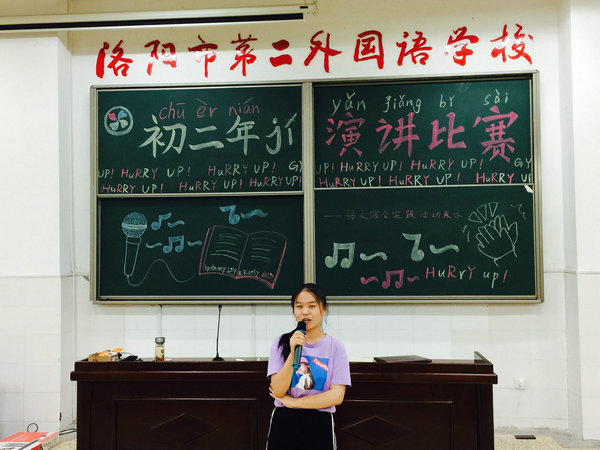 洛阳市第二外国语学校
chū èr nián
初二年级
UP! HuRRY UP! HuRRY UP!
HuRRY UP! HuRRY UP! HuRRY UP!
yǎn jiǎng bǐ sài
演讲比赛
UP! HuRRY UP! HuRRY UP!
HuRRY UP! HuRRY UP! HuRRY UP!
语文综合实践活动展示
HuRRy up!